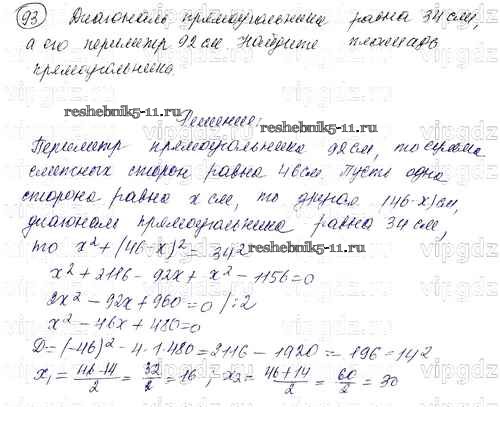 93 Диагональ прямоугольника равна 34 см,
а его периметр 92 см. Найдите площадь
прямоугольника.
reshebnik5-11.ru
Решение:
reshebnik5-11.ru
Периметр прямоугольника 92 см, то сумма
смежных сторон равна 46 см. Пусть одна
сторона равна x см, то другая (46-x) см,
диагональ прямоугольника равна 34 см,
то x² + (46-x)² = 34²
reshebnik5-11.ru
x² + 2116 - 92x + x² - 1156 = 0
2x² - 92x + 960 = 0 /:2
x² - 46x + 480 = 0
D = (-46)² - 4·1·480 = 2116 - 1920 = 196 = 14²
x₁ = (46-14)/2 = 32/2 = 16; x₂ = (46+14)/2 = 60/2 = 30
vipgdz